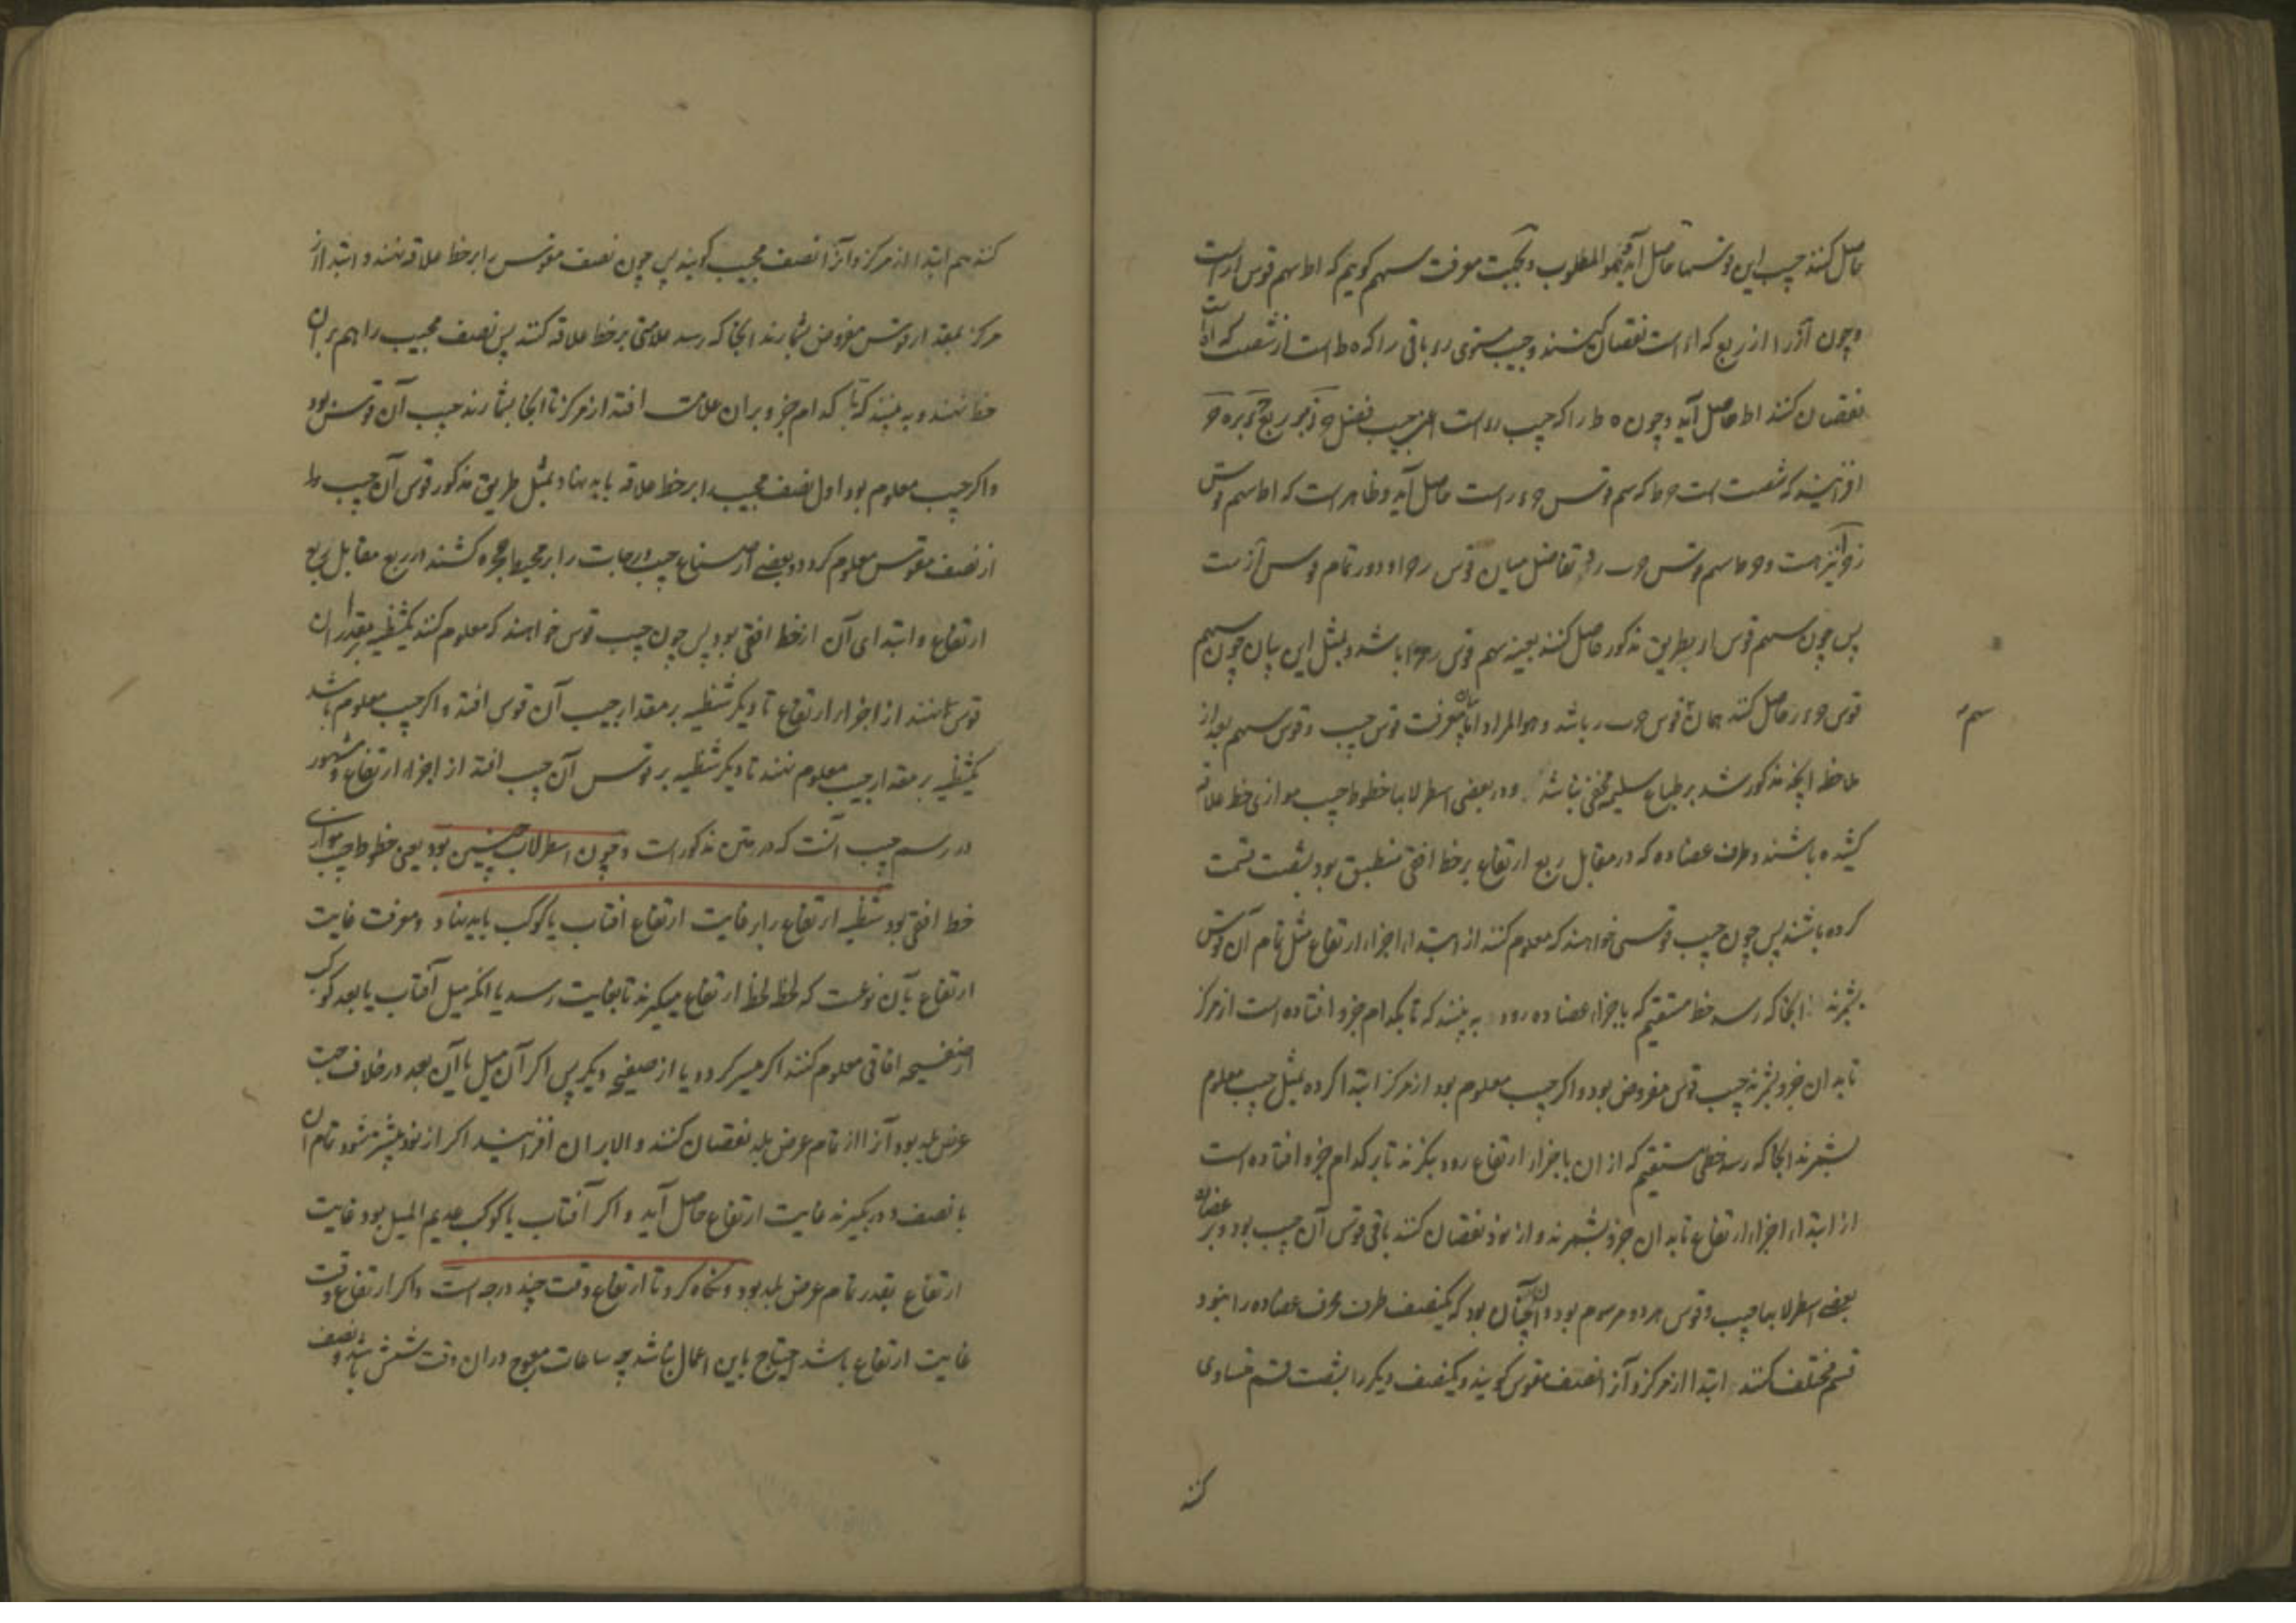 حاصل کنند جیب این قوسها حاصل آید وهو المطلوب وبجهت معرفت سهم کوییم که اط سهم قوس ار است
وچون آنرا از ربع که اء است نقصان کنند وجیب مستوی رء باقی را که ه ط است از شصت که اه است
نقصان کنند اط حاصل آید وچون ه ط را که جیب رء است اعنی جیب فضل بر ربع بر ه ح
افزایند که شصت است ح ط که سهم قوس ح ء ر است حاصل آید وظاهر است که اط سهم قوس
زوا نیز هست و ح ط سهم قوس ح ب ر و تفاضل میان قوس ر ح ا و دور تمام قوس از است
پس چون سهم قوس ار بطریق مذکور حاصل کنند بعینه سهم قوس ر ح ا باشد وبمثل این بیان چون سهم
قوس ح ء ر حاصل کنند همان قوس ح ب ر باشد وهو المراد اما بیان معرفت قوس جیب وقوس سهم بعد از
ملاحظه آنچه مذکور شد بر طباع سلیمه مخفی نباشد ودر بعضی اسطرلابها خطوط جیب موازی خط علاقه
کشیده باشند وطرف عضاده که در مقابل ربع ارتفاع بر خط افق منطبق بود بشصت قسمت
کرده باشند پس چون جیب قوسی خواهند که معلوم کنند از ابتداء اجزاء ارتفاع مثل تمام آن قوس
بشمرند آنجا که رسد خط مستقیم که باجزاء عضاده رود به بینند که تا بکدام جزو افتاده است از مرکز
تا بدان جزو بشمرند جیب قوس مفروض بود واکر جیب معلوم بود از مرکز ابتدا کرده بمثل جیب معلوم
بشمرند آنجا که رسد خطی مستقیم که از ان باجزاء ارتفاع رود بنکرند تا بر کدام جزو افتاده است
از ابتداء اجزاء ارتفاع تا بدان جزو بشمرند و از نود نقصان کنند باقی قوس آن جیب بود وبر عضاده
بعضی اسطرلابها جیب وقوس هر دو مرسوم بود وآن چنان بود که یکنصف طرف محرف عضاده را بنود
قسم مختلف کنند ابتدا از مرکز وآنرا نصف مقوس کویند ویکنصف دیکر را بشصت قسم متساوی
کنند
سهم
کنند هم ابتدا از مرکز وآنرا نصف مجیب کویند پس چون نصف مقوس را بر خط علاقه نهند وابتدا از
مرکز بمقدار قوس مفروض بشمارند آنجا که رسد علامتی بر خط علاقه کنند پس نصف مجیب را هم بر آن
خط نهند وبه بینند که تا کدام جزو بران علامت افتد از مرکز تا آنجا بشمارند جیب آن قوس بود
واکر جیب معلوم بود اول نصف مجیب را بر خط علاقه باید نهاد وبمثل طریق مذکور قوس آن جیب را
از نصف مقوس معلوم کردد وبعضی از صناع جیب درجات را بر محیط حجره کشند در ربع مقابل ربع
ارتفاع وابتدای آن از خط افق بود پس چون جیب قوس خواهند که معلوم کنند یکشظیه بر مقدار آن
قوس نهند از اجزاء ارتفاع تا دیکر شظیه بر مقدار جیب آن قوس افتد واکر جیب معلوم باشد
یکشظیه بر مقدار جیب معلوم نهند تا دیکر شظیه بر قوس آن جیب افتد از اجزاء ارتفاع ومشهور
در رسم جیب آنست که در متن مذکور است وچون اسطرلاب چنین بود یعنی خطوط جیب موازی
خط افق بود شظیه ارتفاع را بر غایت ارتفاع افتاب یا کوکب باید نهاد ومعرفت غایت
ارتفاع بآن نوعست که لحظه لحظه ارتفاع میکیرند تا بغایت رسد یا آنکه میل آفتاب یا بعد کوکب
از صفیحه افاقی معلوم کنند اکر میسر کردد یا از صفیحه دیکر پس اکر آن میل یا آن بعد در خلاف جهت
عرض بلد بود آنرا از تمام عرض بلد نقصان کنند والا بر ان افزایند اکر از نود بیشتر شود تمام آن
با نصف دور بکیرند غایت ارتفاع حاصل آید واکر آفتاب یا کوکب عدیم المیل بود غایت
ارتفاع بقدر تمام عرض بلد بود ونکاه کرد تا ارتفاع وقت چند درجه است واکر ارتفاع وقت
غایت ارتفاع باشد احتیاج باین اعمال نباشد چه ساعات معوج دران وقت شش باشد ونصف